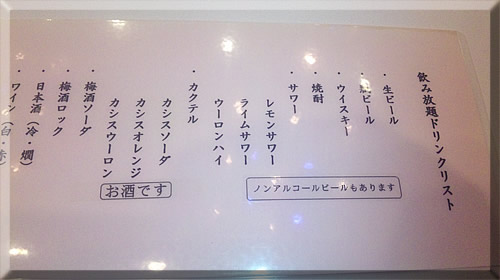 飲み放題ドリンクリスト
・生ビール
ビール
・ウイスキー
・焼酎
・サワー
レモンサワー
ライムサワー
ウーロンハイ
・カクテル
カシスソーダ
カシスオレンジ
カシスウーロン
・梅酒ソーダ
・梅酒ロック
・日本酒（冷・燗）
・ワイン（白・赤）
ノンアルコールビールもあります
お酒です